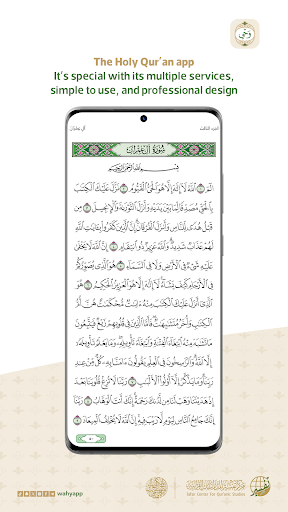 وحي
The Holy Qur'an app
It's special with its multiple services,
simple to use, and professional design
الجزء الثالث
آل عمران
سُورَةُ آلِ عِمْرَان
بِسْمِ ٱللَّهِ ٱلرَّحْمَٰنِ ٱلرَّحِيمِ
الٓمٓ ١ ٱللَّهُ لَآ إِلَٰهَ إِلَّا هُوَ ٱلْحَىُّ ٱلْقَيُّومُ ٢ نَزَّلَ عَلَيْكَ ٱلْكِتَٰبَ
بِٱلْحَقِّ مُصَدِّقًا لِّمَا بَيْنَ يَدَيْهِ وَأَنزَلَ ٱلتَّوْرَىٰةَ وَٱلْإِنجِيلَ ٣ مِن
قَبْلُ هُدًى لِّلنَّاسِ وَأَنزَلَ ٱلْفُرْقَانَ إِنَّ ٱلَّذِينَ كَفَرُوا۟ بِـَٔايَٰتِ ٱللَّهِ
لَهُمْ عَذَابٌ شَدِيدٌ وَٱللَّهُ عَزِيزٌ ذُو ٱنتِقَامٍ ٤ إِنَّ ٱللَّهَ لَا يَخْفَىٰ
عَلَيْهِ شَىْءٌ فِى ٱلْأَرْضِ وَلَا فِى ٱلسَّمَآءِ ٥ هُوَ ٱلَّذِى يُصَوِّرُكُمْ
فِى ٱلْأَرْحَامِ كَيْفَ يَشَآءُ لَآ إِلَٰهَ إِلَّا هُوَ ٱلْعَزِيزُ ٱلْحَكِيمُ ٦ هُوَ
ٱلَّذِىٓ أَنزَلَ عَلَيْكَ ٱلْكِتَٰبَ مِنْهُ ءَايَٰتٌ مُّحْكَمَٰتٌ هُنَّ أُمُّ
ٱلْكِتَٰبِ وَأُخَرُ مُتَشَٰبِهَٰتٌ فَأَمَّا ٱلَّذِينَ فِى قُلُوبِهِمْ زَيْغٌ فَيَتَّبِعُونَ
مَا تَشَٰبَهَ مِنْهُ ٱبْتِغَآءَ ٱلْفِتْنَةِ وَٱبْتِغَآءَ تَأْوِيلِهِۦ وَمَا يَعْلَمُ تَأْوِيلَهُۥٓ
إِلَّا ٱللَّهُ وَٱلرَّٰسِخُونَ فِى ٱلْعِلْمِ يَقُولُونَ ءَامَنَّا بِهِۦ كُلٌّ مِّنْ عِندِ
رَبِّنَا وَمَا يَذَّكَّرُ إِلَّآ أُو۟لُوا۟ ٱلْأَلْبَٰبِ ٧ رَبَّنَا لَا تُزِغْ قُلُوبَنَا بَعْدَ
إِذْ هَدَيْتَنَا وَهَبْ لَنَا مِن لَّدُنكَ رَحْمَةً إِنَّكَ أَنتَ ٱلْوَهَّابُ ٨ رَبَّنَآ
إِنَّكَ جَامِعُ ٱلنَّاسِ لِيَوْمٍ لَّا رَيْبَ فِيهِ إِنَّ ٱللَّهَ لَا يُخْلِفُ ٱلْمِيعَادَ ٩
٥٠
wahyapp
مركز تفسير للدراسات القرآنية
Tafsir Center for Qur'anic Studies
تفسير